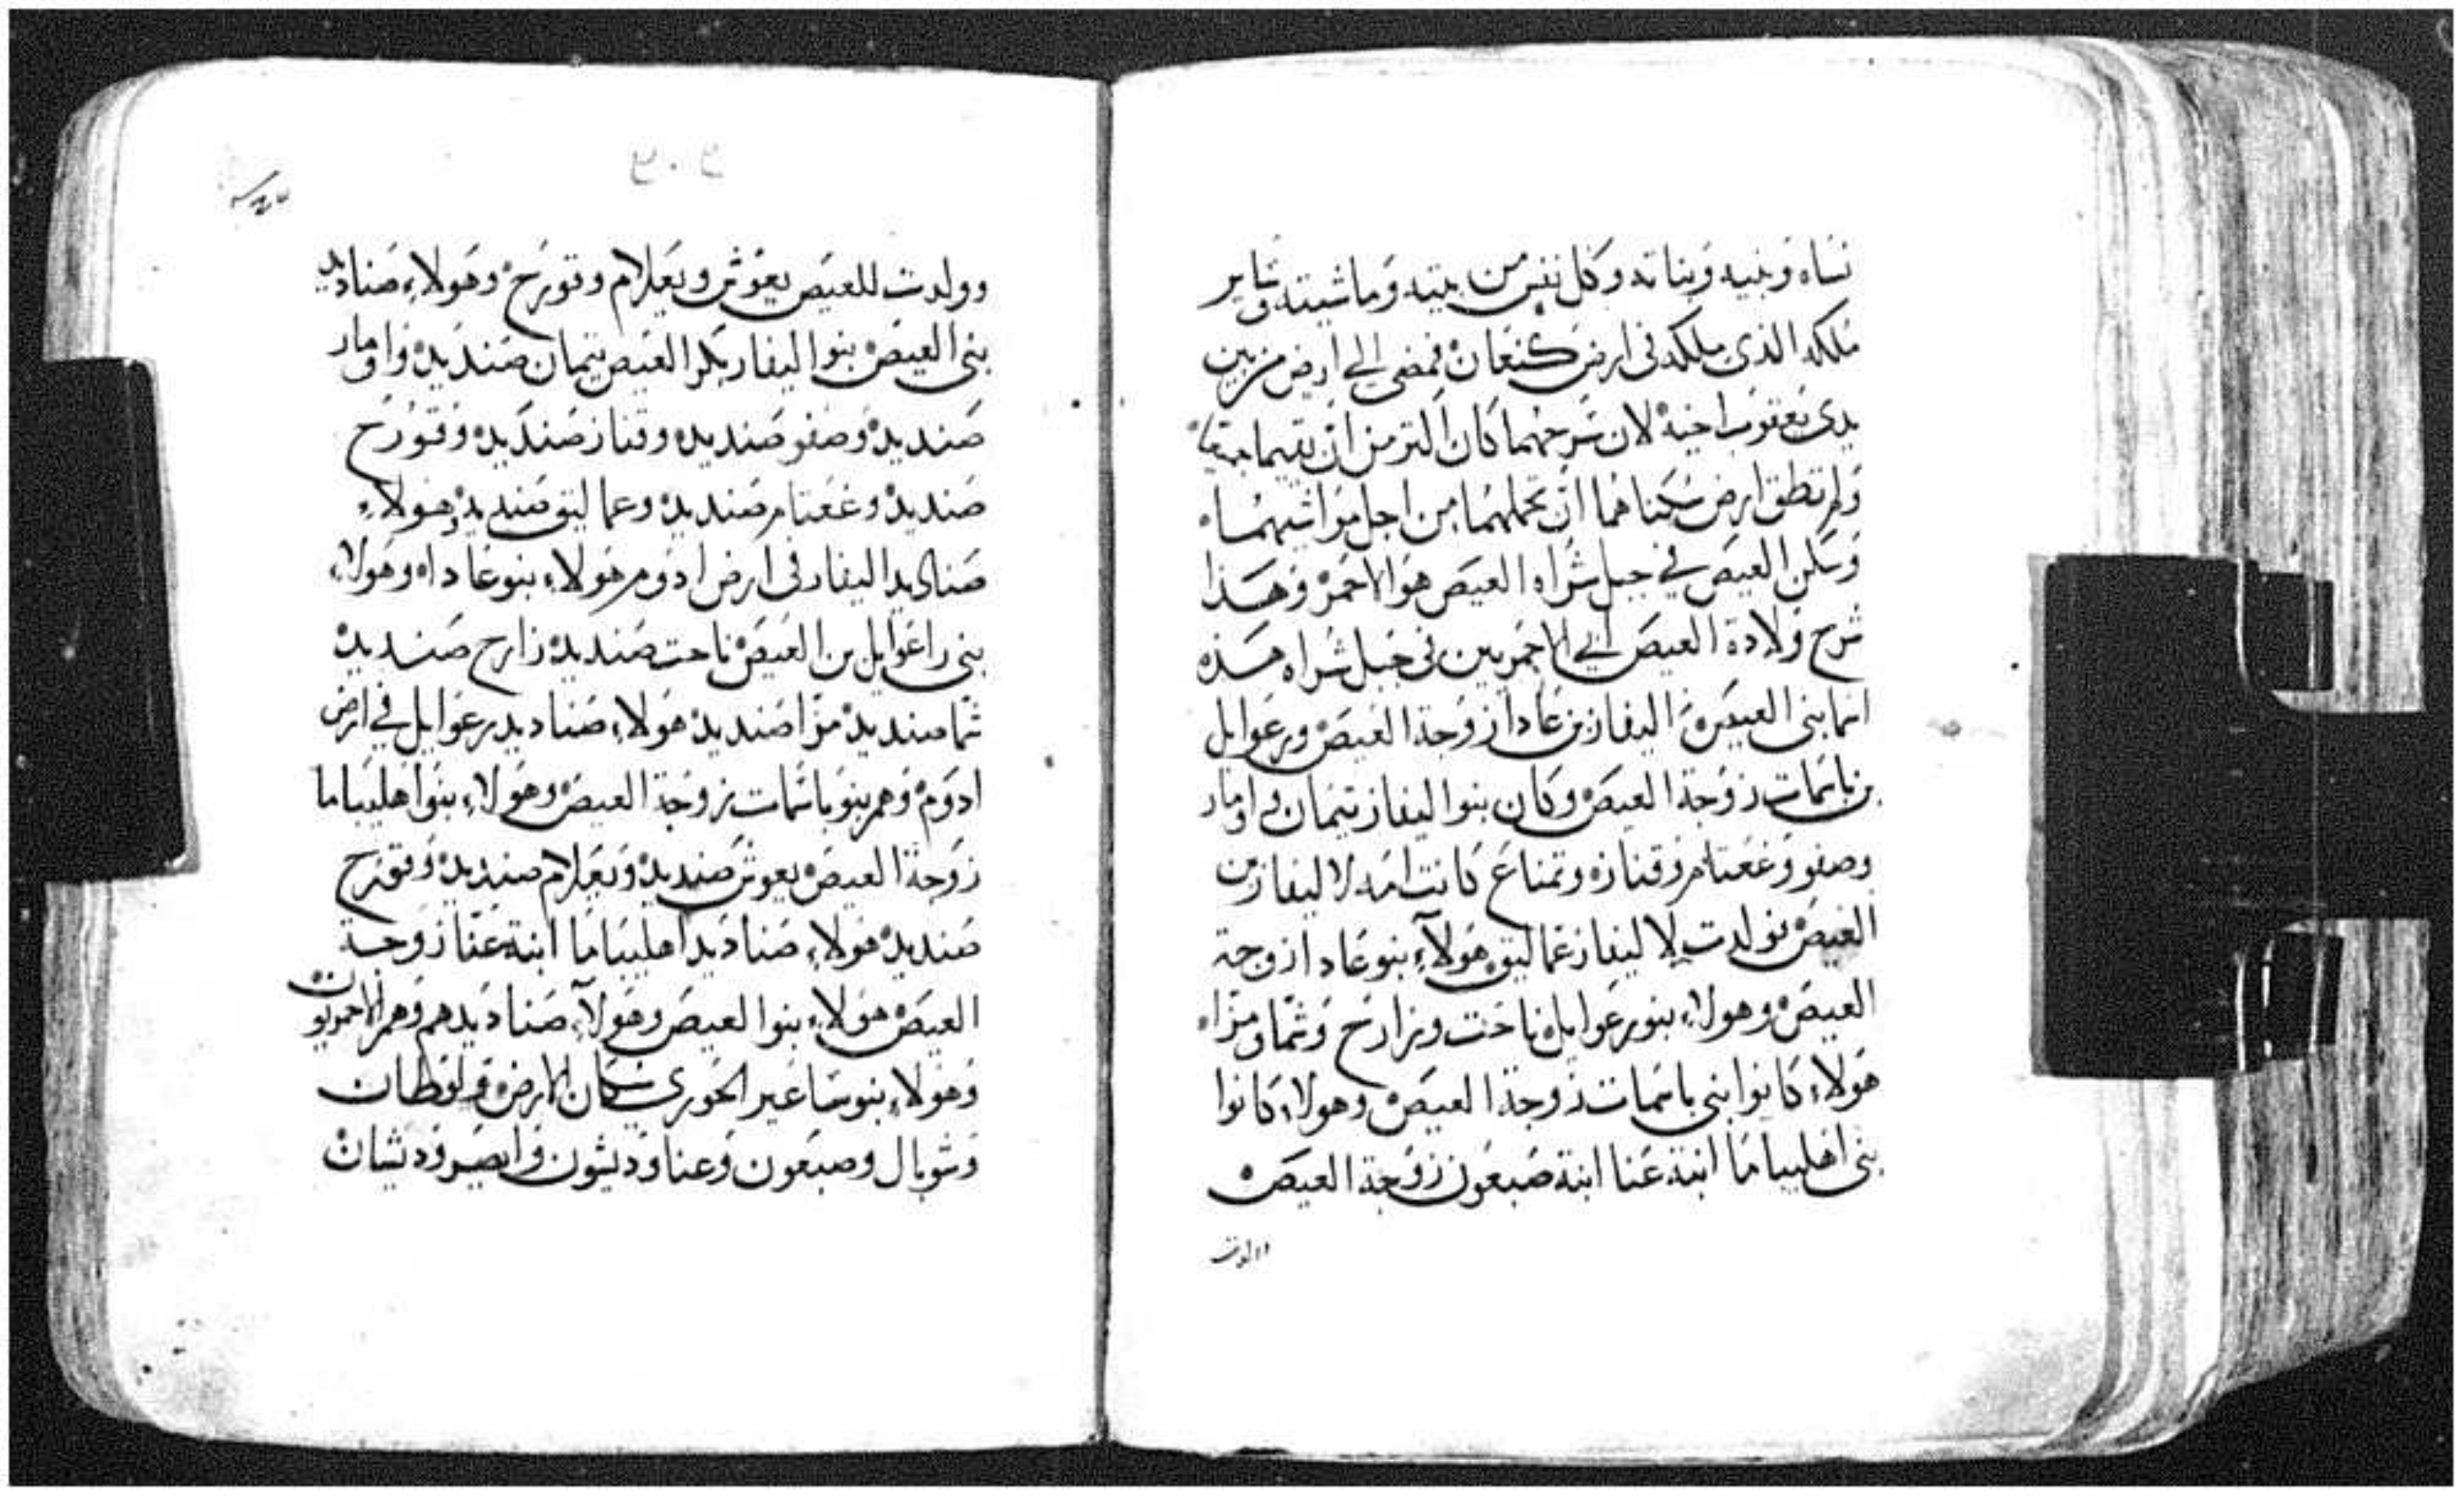 نساه وبنيه وبناته وكل نفس من بيته وماشيته وساير
ملكه الذي ملكه في ارض كنعان فمضى الى ارض من بين
يدى يعقوب اخيه لان سرحهما كان اكثر من ان يقيما جميعا
ولم تطق ارض سكناهما ان تحملهما من اجل مواشيهما
وسكن العيص في جبل شراه العيص هو الاحمر وهذا
شرح ولادة العيص ابي الاحمريين في جبل شراه هذه
اسما بني العيص اليفاز بن عادا زوجة العيص ورعوايل
بن باسمات زوجة العيص وكان بنوا اليفاز تيمان واومار
وصفو وغعتام وقناز وتمناع كانت امه لاليفاز بن
العيص فولدت لاليفاز عماليق هولآء بنو عادا زوجة
العيص وهولاء بنو رعوايل ناحت وزارح وشما ومزا
هولاء كانوا بني باسمات زوجة العيص وهولاء كانوا
بني اهليباما ابنة عنا ابنة صبعون زوجة العيص
وولدت
وولدت للعيص يعوش ويعلام وقورح وهولاء صناديد
بني العيص بنوا اليفاز بكر العيص تيمان صنديد واومار
صنديد وصفو صنديد وقناز صنديد وقورح
صنديد وغعتام صنديد وعماليق صنديد هولاء
صناديد اليفاز في ارض ادوم هولاء بنو عاداه وهولاء
بني راعوايل بن العيص ناحت صنديد زارح صنديد
شما صنديد مزا صنديد هولاء صناديد رعوايل في ارض
ادوم وهم بنو باسمات زوجة العيص وهولاء بنوا اهليباما
زوجة العيص يعوش صنديد ويعلام صنديد وقورح
صنديد هولاء صناديد اهليباما ابنة عنا زوجة
العيص هولاء بنوا العيص وهولآء صناديدهم وهم الاحمريون
وهولاء بنو ساعير الحوري سكان الارض لوطان
وشوبال وصبعون وعنا وديشون وايصر وديشان